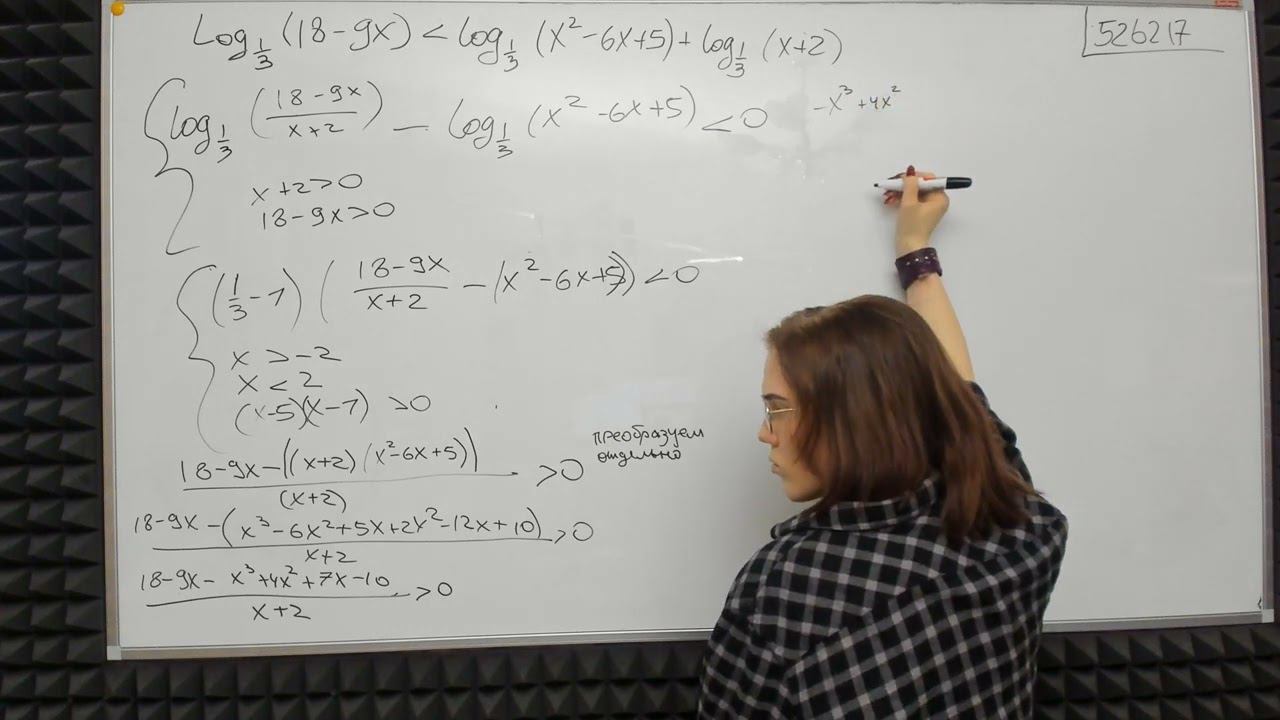 Log_{1/3} (18-9x) < log_{1/3} (x²-6x+5) + log_{1/3} (x+2)
526217
log_{1/3} ((18-9x)/(x+2)) - log_{1/3} (x²-6x+5) < 0
-x³+4x²
x+2>0
18-9x>0
(1/3-1) ((18-9x)/(x+2) - (x²-6x+5)) < 0
x > -2
x < 2
(x-5)(x-1) > 0
(18-9x-((x+2)(x²-6x+5)))/(x+2) > 0
преобразуем
отдельно
(18-9x-(x³-6x²+5x+2x²-12x+10))/(x+2) > 0
(18-9x-x³+4x²+7x-10)/(x+2) > 0